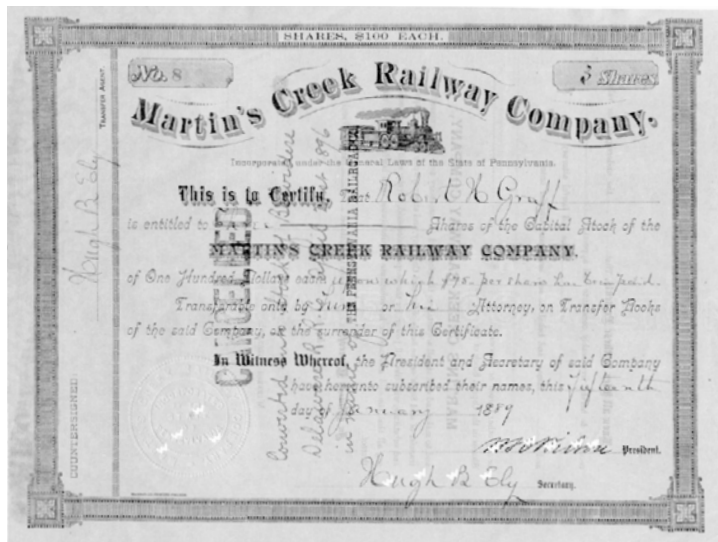 SHARES, $100 EACH.
No. 8
5 Shares
Martin's Creek Railway Company.
Incorporated under the General Laws of the State of Pennsylvania.
This is to Certify, that Robert H Graff
is entitled to Shares of the Capital Stock of the
MARTIN'S CREEK RAILWAY COMPANY,
of One Hundred Dollars each upon which $75. per share has been paid.
Transferable only by him or his Attorney, on Transfer Books
of the said Company, on the surrender of this Certificate.
In Witness Whereof, the President and Secretary of said Company
have hereunto subscribed their names, this fifteenth
day of January 1889
President.
Hugh B Ely Secretary.
COUNTERSIGNED
Hugh B Ely
TRANSFER AGENT.
CANCELLED
Converted into stock of Belvidere
Delaware R
in name of THE PENNSYLVANIA RAILROAD CO.
MARTIN'S CREEK RAILWAY COMPANY